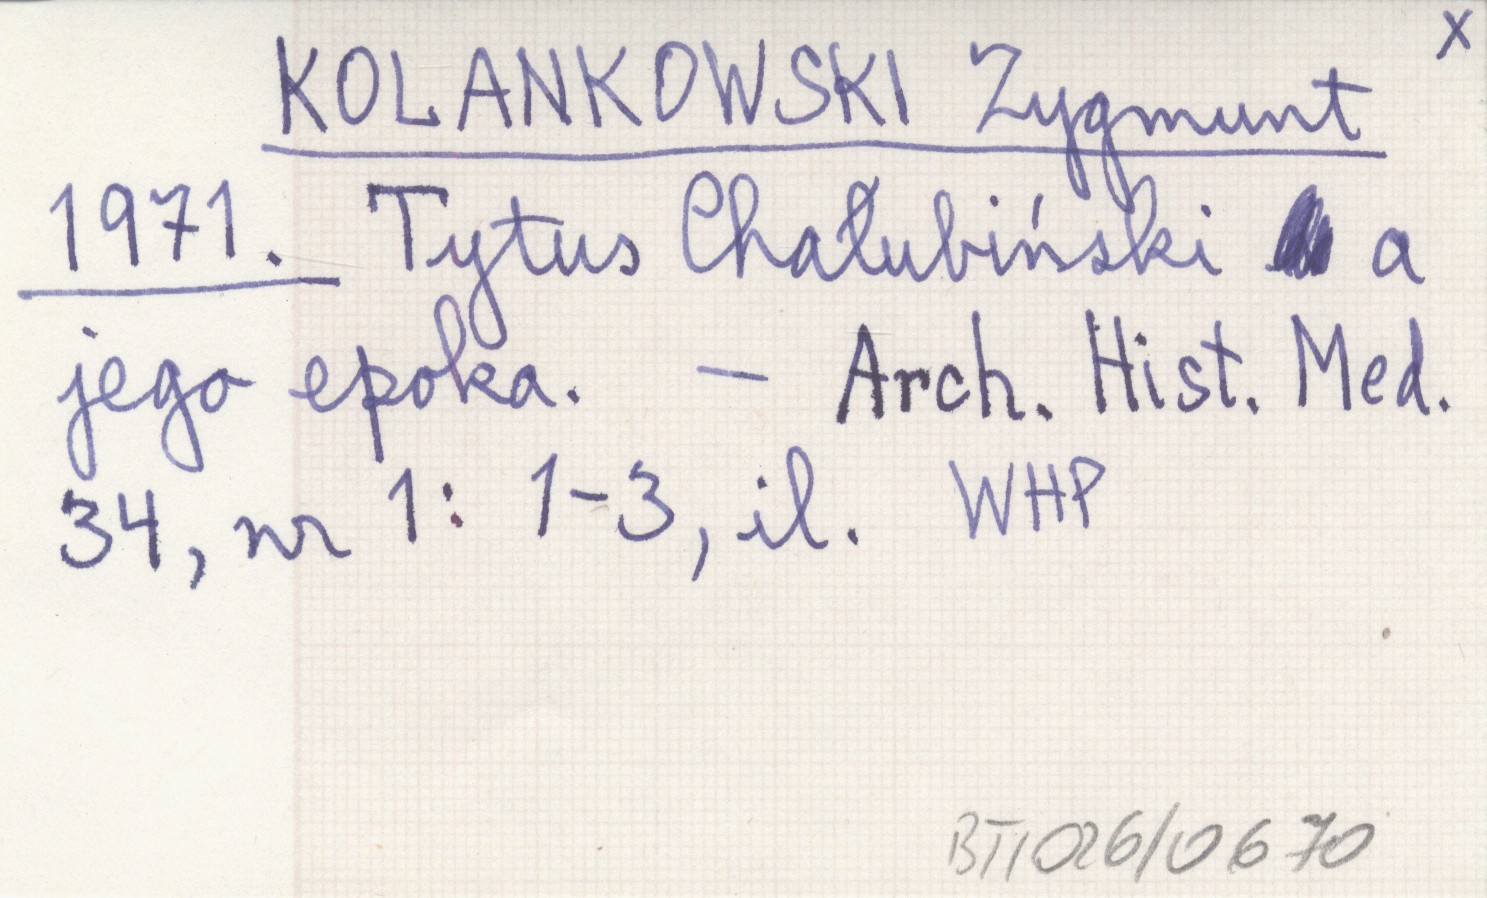 x
KOLANKOWSKI Zygmunt
1971. Tytus Chałubiński a
jego epoka. — Arch. Hist. Med.
34, nr 1: 1-3, il. WHP
BTI026/0670